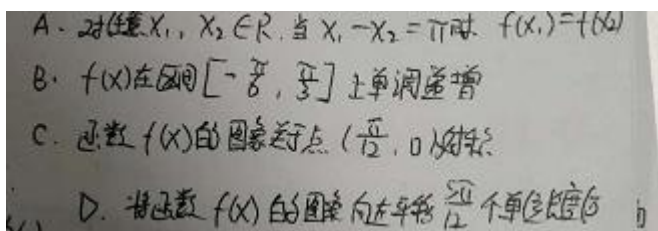 A. 对任意 x₁, x₂ ∈ R, 当 x₁ - x₂ = π 时 f(x₁) = f(x₂)
B. f(x) 在区间 [-π/6, π/3] 上单调递增
C. 函数 f(x) 的图象关于点 (π/12, 0) 对称
D. 将函数 f(x) 的图象向左平移 5π/12 个单位长度后